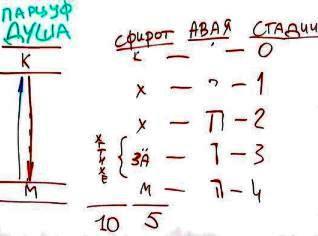 ПАРЦУФ
ДУША
СФИРОТ АВАЯ СТАДИИ
К
К — ' — 0
Х — י — 1
Х — ה — 2
ХГТНХЕ { ЗА — ו — 3
М — ה — 4
М
10 5